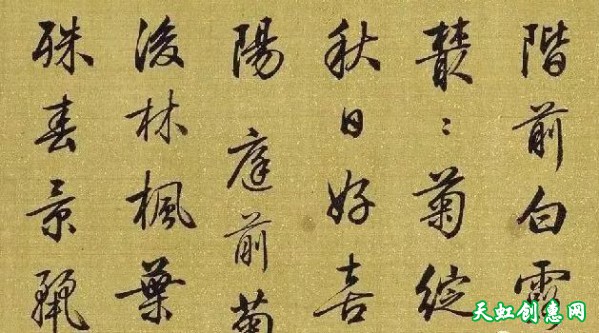 階前白露
叢〻菊綻
秋日好喜
陽庭前菊
後林楓葉
殊春景
天虹创惠网